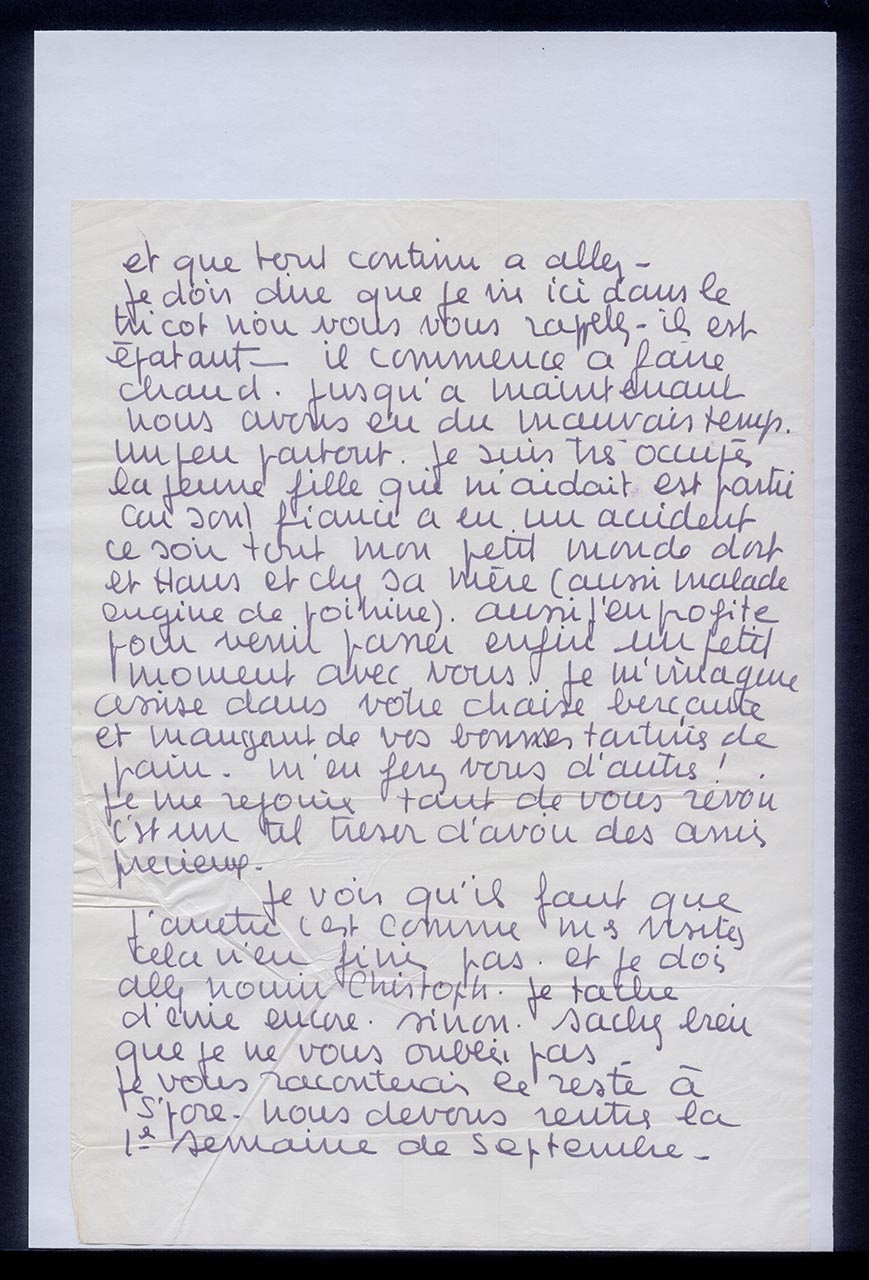 et que tout continu a aller -
je dois dire que je vis ici dans le
tricot noir vous vous rappelez - il est
épatant - il commence a faire
chaud. jusqu'a maintenant
nous avons eu du mauvais temp.
un peu partout. je suis très occupés
la jeune fille qui m'aidait est partie
car sont fiancé a eu un accident
ce soir tout mon petit monde dort
et Hans et chez sa mère (aussi malade
engine de poitrine). aussi j'en profite
pour venir passer enfin un petit
moment avec vous. je m'imagine
assise dans votre chaise berçante
et mangent de vos bonnes tartines de
pain. m'en ferez vous d'autres!
je me rejouis tant de vous revoir
c'est un tel tresor d'avoir des amis
precieux.
je vois qu'il faut que
j'arrette c'est comme mes visites
cela n'en finis pas. et je dois
allez nourrir Christoph. je tache
d'ecrire encore. sinon. sachez bien
que je ne vous oublie pas
je vous raconterais le reste à
S'pore - nous devons rentrer la
1e semaine de Septembre -